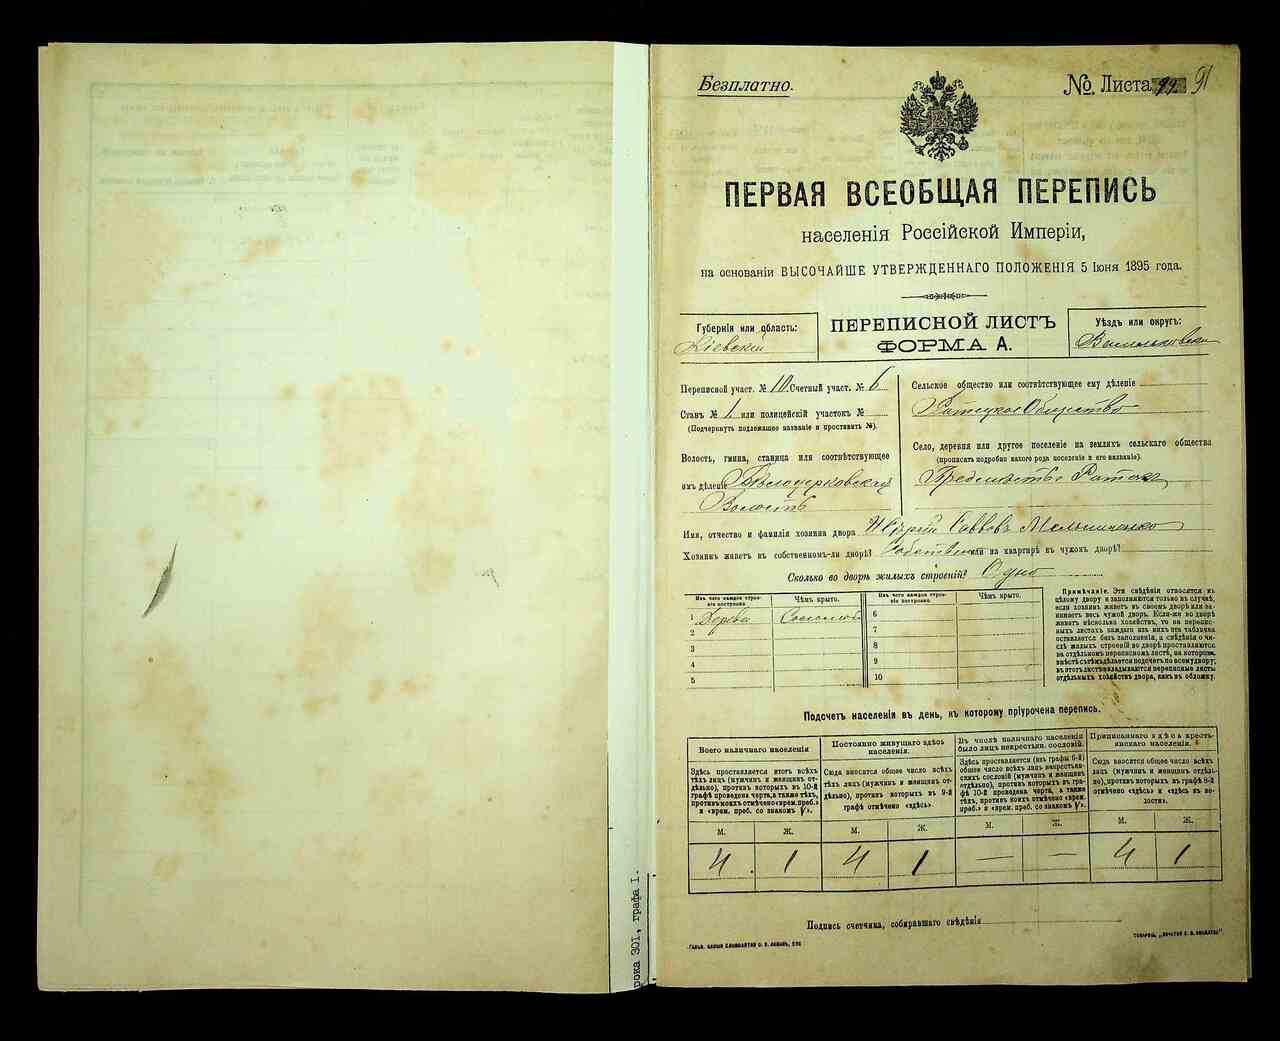 Безплатно.
№ Листа 91
ПЕРВАЯ ВСЕОБЩАЯ ПЕРЕПИСЬ
населенія Россійской Имперіи,
на основаніи ВЫСОЧАЙШЕ УТВЕРЖДЕННАГО ПОЛОЖЕНІЯ 5 Іюня 1895 года.
Губернія или область:
Кіевскій
ПЕРЕПИСНОЙ ЛИСТЪ
ФОРМА А.
Уѣздъ или округъ:
Васильковскій
Переписной участ. № 10. Счетный участ. № 6
Станъ № 1. или полицейскій участокъ №
(Подчеркнуть подлежащее названіе и проставить №).
Волость, гмина, станица или соотвѣтствующее
имъ дѣленіе Бѣлоцерковская
Волость
Сельское общество или соотвѣтствующее ему дѣленіе
Общество
Село, деревня или другое поселеніе на земляхъ сельскаго общества
(прописать подробно какого рода поселеніе и его названіе).
Предмѣстье
Имя, отчество и фамилія хозяина двора Савовъ Мельниченко
Хозяинъ живетъ въ собственномъ-ли дворѣ? или на квартирѣ въ чужомъ дворѣ?
Сколько во дворѣ жилыхъ строеній? Одно
Изъ чего каждое строеніе построено.
Чѣмъ крыто.
Изъ чего каждое строеніе построено.
Чѣмъ крыто.
1 Дерева Соломой
2
3
4
5
6
7
8
9
10
Примѣчаніе. Эти свѣдѣнія относятся къ
цѣлому двору и заполняются только въ случаѣ,
если хозяинъ живетъ въ своемъ дворѣ или занимаетъ
весь чужой дворъ. Если-же во дворѣ
живетъ нѣсколько хозяйствъ, то на переписныхъ
листахъ каждаго изъ нихъ эта табличка
оставляется безъ заполненія, а свѣдѣнія о числѣ
жилыхъ строеній во дворѣ проставляются
на отдѣльномъ переписномъ листѣ, на которомъ
вмѣстѣ съ тѣмъ дѣлается подсчетъ по всему двору;
въ этотъ листъ вкладываются переписные листы
отдѣльныхъ хозяйствъ двора, какъ въ обложку.
Подсчетъ населенія въ день, къ которому пріурочена перепись.
Всего наличнаго населенія
Здѣсь проставляется итогъ всѣхъ
тѣхъ лицъ (мужчинъ и женщинъ отдѣльно),
противъ которыхъ въ 10-й
графѣ проведена черта, а также тѣхъ,
противъ коихъ отмѣчено «врем. преб.»
и «врем. преб. со знакомъ V».
Постоянно живущаго здѣсь
населенія.
Сюда вносится общее число всѣхъ
тѣхъ лицъ (мужчинъ и женщинъ отдѣльно),
противъ которыхъ въ 9-й
графѣ отмѣчено «здѣсь»
Въ числѣ наличнаго населенія
было лицъ некрестьян. сословій.
Здѣсь проставляется (изъ графы 6-й)
общее число всѣхъ лицъ некрестьянскихъ
сословій (мужчинъ и женщинъ
отдѣльно), противъ которыхъ въ графѣ
10-й проведена черта, а также
тѣхъ, противъ коихъ отмѣчено «врем.
преб.» и «врем. преб. со знакомъ V».
Приписаннаго здѣсь крестьянскаго
населенія.
Сюда вносится общее число всѣхъ
лицъ (мужчинъ и женщинъ отдѣльно),
противъ которыхъ въ графѣ 8-й
отмѣчено «здѣсь» и «здѣсь въ волости».
М. Ж. М. Ж. М. Ж. М. Ж.
4 1 4 1 — — 4 1
Подпись счетчика, собиравшаго свѣдѣнія
рока 301, графа I.